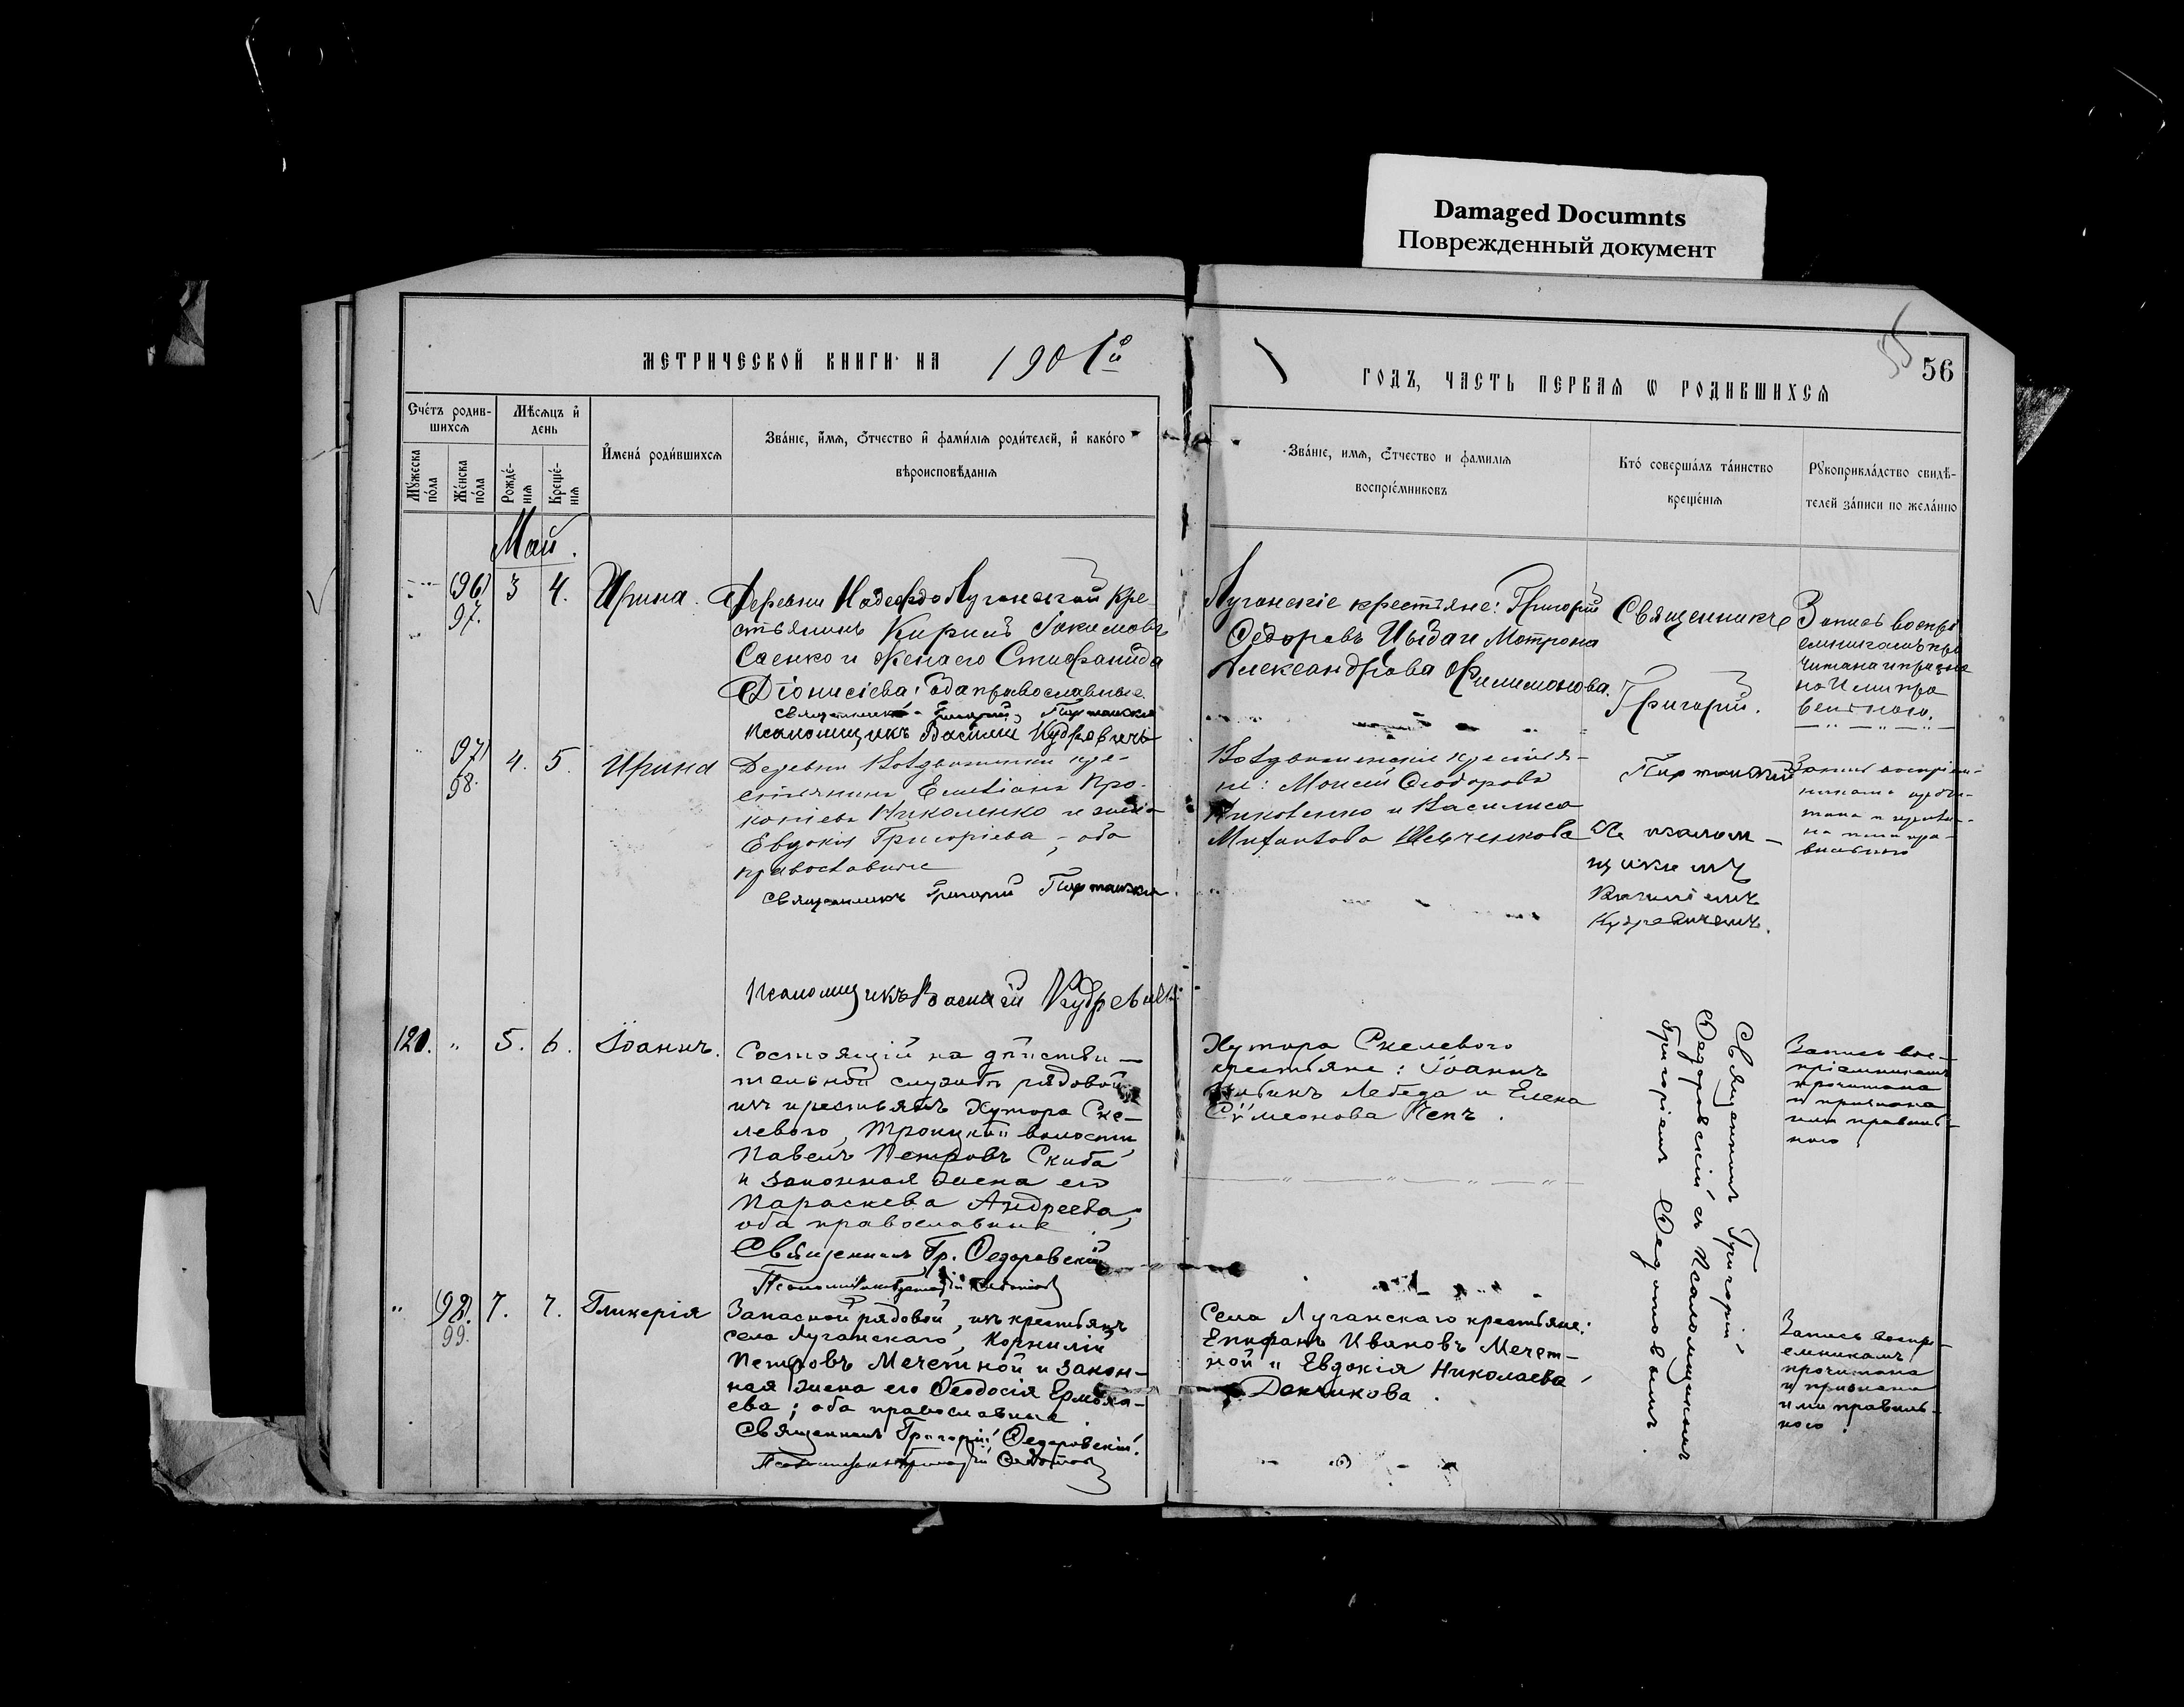 Damaged Documnts
Поврежденный документ
МЕТРИЧЕСКОЙ КНИГИ НА 1901й
ГОДЪ, ЧАСТЬ ПЕРВАЯ Ѡ РОДИВШИХСЯ
55
56
Счетъ родив-
шихся
Мѣсяцъ и
день
Имена родившихся
Званіе, имя, отчество и фамилія родителей, и какого
вѣроисповѣданія
Мужеска
пола
Женска
пола
Рожде-
нія
Креще-
нія
Званіе, имя, отчество и фамилія
воспріемниковъ
Кто совершалъ таинство
крещенія
Рукоприкладство свидѣ-
телей записи по желанію
Май.
96 3 4. Ирина.
97.
Деревни Луганской кре-
стьянинъ Кирилъ Іакимовъ
Саенко и жена его Стефанида
Діонисіева; оба православные.
Священникъ Григорій
Псаломщикъ Василій Кудревичъ
Луганскіе крестьяне: Григорій
Ѳедоровъ Цыба и Мотрона
Александрова Филимонова.
Священникъ
Григорій.
Запись воспрі
емникамъ про
читана и призна
на ими пра
вильною.
97 4. 5. Ирина
98.
Деревни кре-
стьянинъ Емеліанъ Про-
копіевъ Николенко и жена
Евдокія Григоріева, оба
православные
Священникъ Григорій
Псаломщикъ Василій Кудревичъ
крестья-
не: Моисей Ѳеодоровъ
и Василиса
Шевченкова
Съ псалом-
щикомъ
Василіемъ
Кудревичемъ.
Запись воспріем-
никамъ прочи-
тана и призна-
на ими пра-
вильною
120. " 5. 6. Іоаннъ.
Состоящій на дѣйстви-
тельной службѣ рядовой
изъ крестьянъ Хутора Ске-
левого, Троицкой волости
Павелъ Петровъ Скиба
и законная жена его
Параскева Андреева,
оба православные
Священникъ Гр. Ѳедоровскій
Хутора Скелевого
крестьяне: Іоаннъ
Лебеда и Елена
Сѵмеонова Пенъ.
Священникъ Григорій
Ѳедоровскій съ Псаломщикомъ
Григоріемъ Ѳедотовымъ.
Запись вос-
пріемникамъ
прочитана
и признана
ими правиль-
ною
" 98. 7. 7. Гликерія
99.
Запасной рядовой, изъ крестьянъ
села Луганскаго, Корнилій
Петровъ Мечетной и закон-
ная жена его Ѳеодосія Ермола-
ева; оба православные
Священникъ Григорій Ѳедоровскій.
Села Луганскаго крестьяне:
Епифанъ Ивановъ Мечет-
ной и Евдокія Николаева
Денчикова.
Запись воспрі-
емникамъ
прочитана
и признана
ими правиль-
ною.